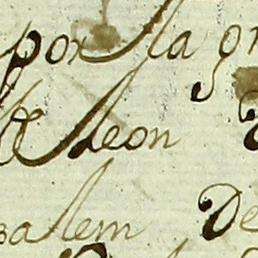 por la gr
de Leon
salem De